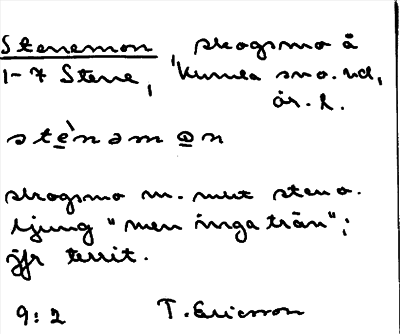 Stenemon, skogsmo å
1-7 Stene, Kumla sn o. hd,
ör. l.
stènamon
skogsmo m. mkt sten o.
ljung "men inga trän";
jfr territ.
9:2 T. Ericsson